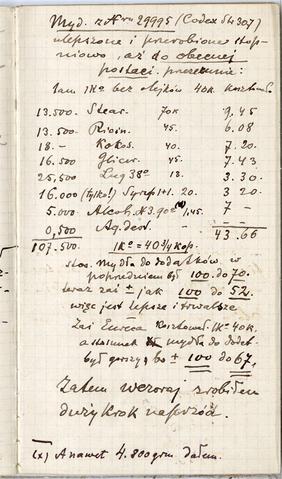 Myd. z Nru 29995 (Codex Str 307)
ulepszone i przerobione stop-
niowo, aż do obecnej
postaci.
1 Ko bez olejków 40 k.
13.500. Stear. 70k 9,45
13.500 Ricin. 45. 6.08
18.— Kokos. 40. 7.20
16.500 Glicer. 45. 7.43
25,500 Lug 38° 18. 3.30
16.000 (tylko!) Syrop 1+1. 20 3 20
5.000. Alcoh. N3. 90° (x) 1,45. 7 —
0,500 Aq. des. — —
107.500. 1Ko = 40¾ kop. 43.66
stos. mydła do dodatków, w
poprzedniem był 100 do 70.
teraz zaś ± jak 100 do 52.
więc jest lepsze i trwalsze
Zaś Eureca kosztował 1Ko 40k.
a stosunek mydła do dodat.
był gorszy, bo ± 100 do 67.
Zatem wczoraj zrobiłem
duży krok naprzód.
(x) A nawet 4.800 grm dałem.